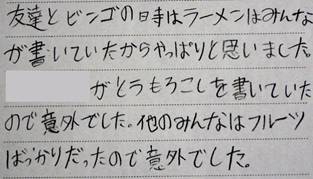 友達とビンゴの時はラーメンはみんな
が書いていたからやっぱりと思いました。
がとうもろこしを書いていた
ので意外でした。他のみんなはフルーツ
ばっかりだったので意外でした。